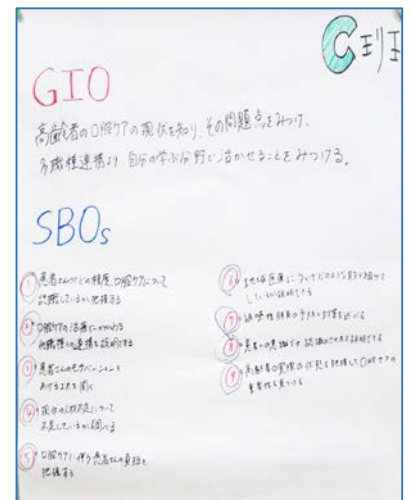 C班
GIO
高齢者の口腔ケアの現状を知り、その問題点をみつけ、
多職種連携より 自分の学ぶ分野に活かせることをみつける。
SBOs
① 患者さんがどの程度、口腔ケアについて
認識しているか把握する
② 口腔ケアの治療にかかわる
他職種との連携を説明する
③ 患者さんのモチベーションを
あげる工夫を聞く
④ 現在の人材不足について
不足しているか調べる
⑤ 口腔ケアに伴う患者さんの負担を
把握する
⑥ 地域医療についてどのような取り組みを
しているか説明できる
⑦ 誤嚥性肺炎の予防と対策を述べる
⑧ 患者への意識づけ
⑨ 高齢者の実際の状況を把握して口腔ケアの
重要性を見つける